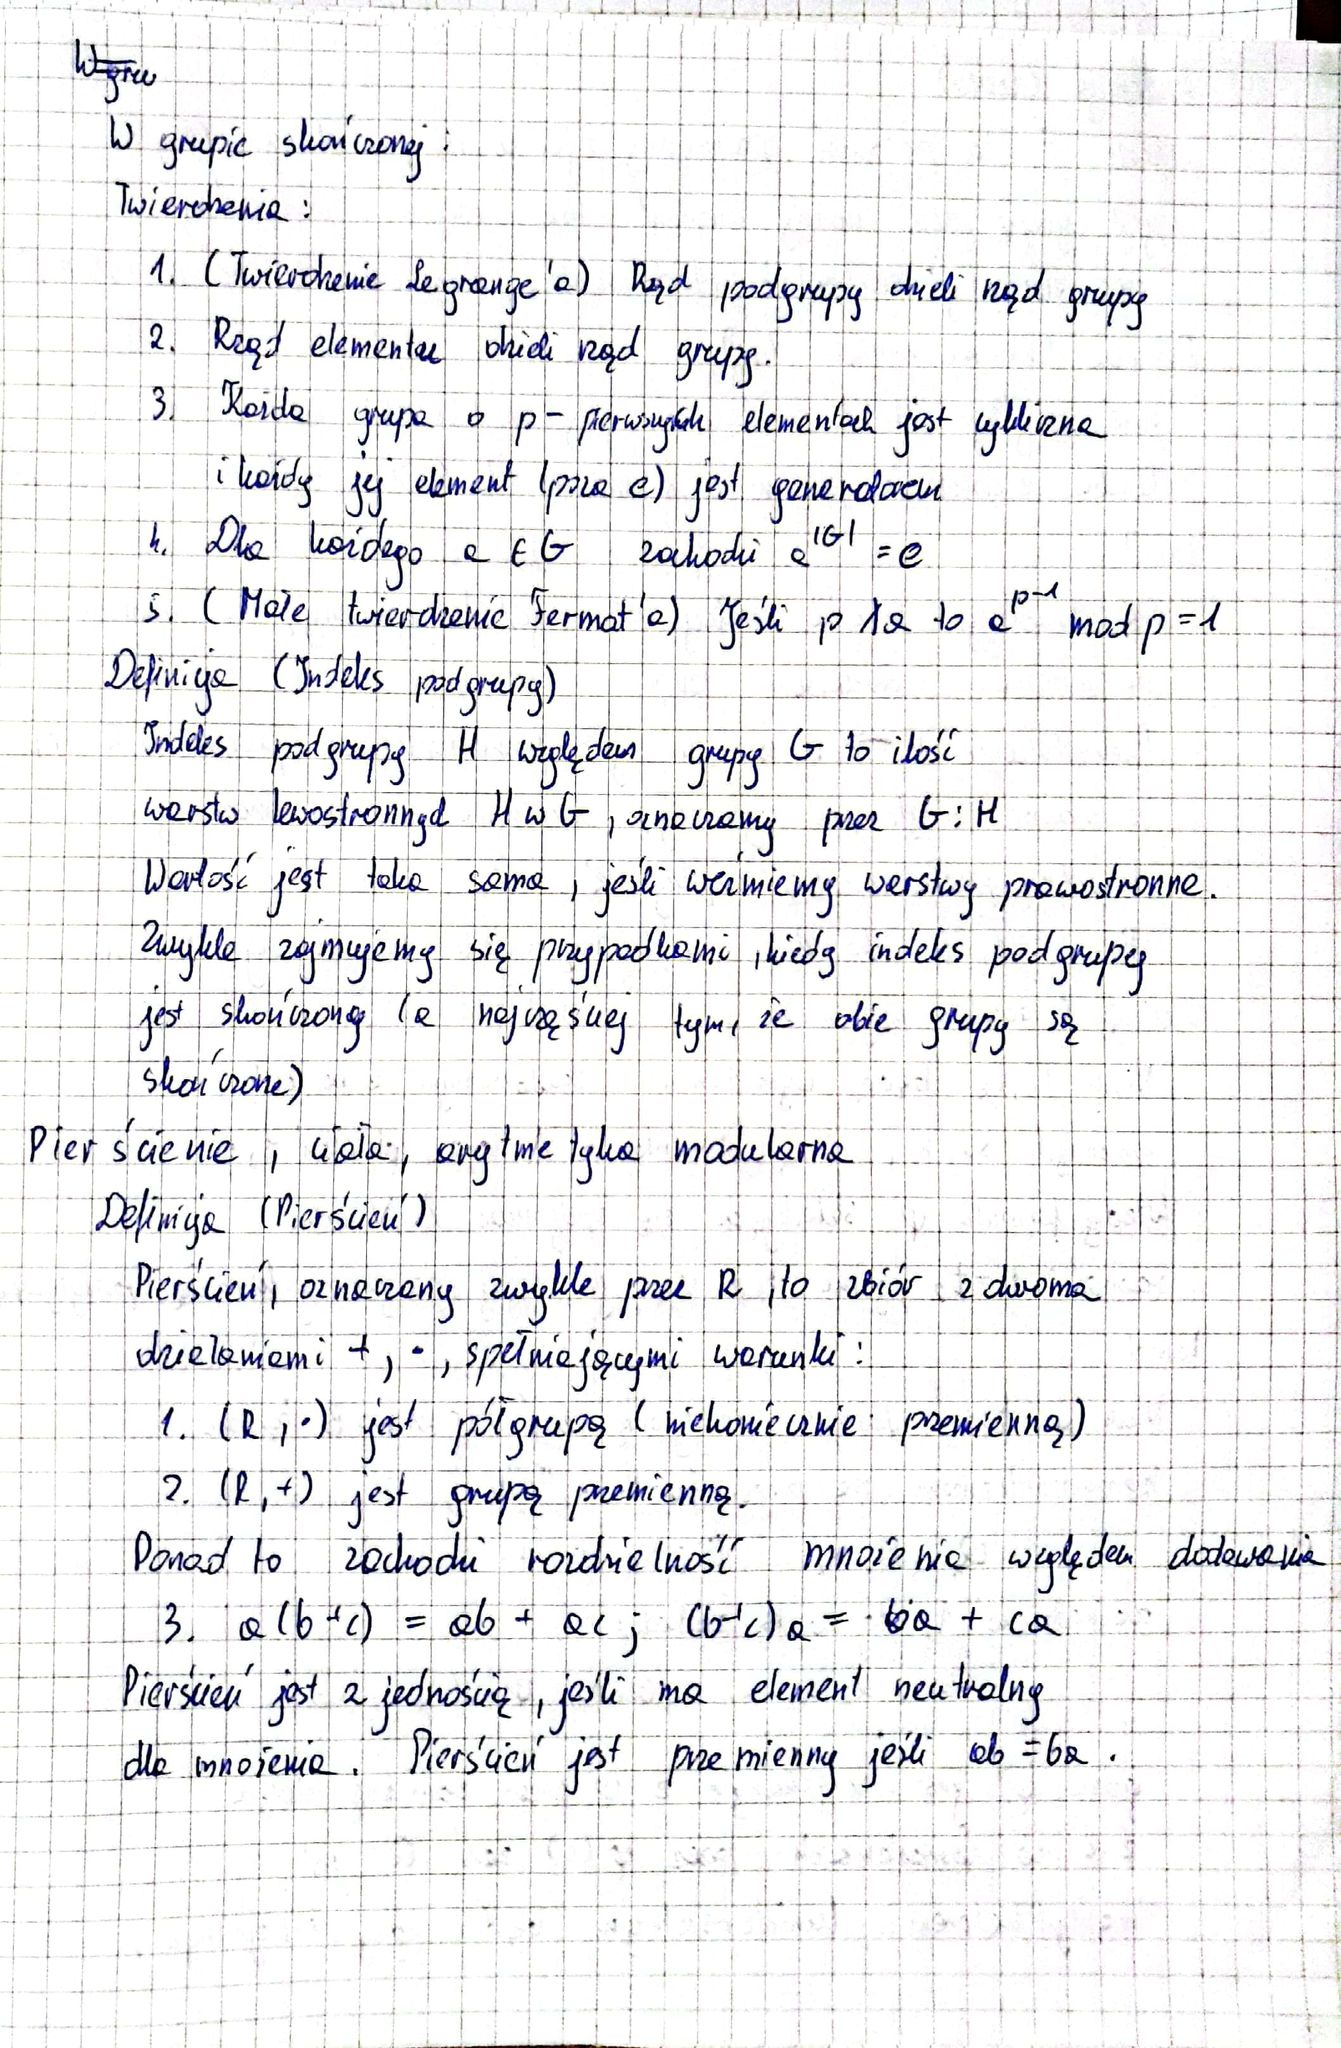 W gru
W grupie skończonej:
Twierdzenia:
1. (Twierdzenie Legrange'a) Rząd podgrupy dzieli rząd grupy
2. Rząd elementu dzieli rząd grupy.
3. Każda grupa o p - pierwszych elementach jest cykliczna
i każdy jej element (poza e) jest generatorem
4. Dla każdego a ∈ G zachodzi a^|G| = e
5. (Małe twierdzenie Fermat'a) Jeśli p ∤ a to a^{p-1} mod p = 1
Definicja (Indeks podgrupy)
Indeks podgrupy H względem grupy G to ilość
warstw lewostronnych H w G, oznaczamy przez G:H
Wartość jest taka sama, jeśli weźmiemy warstwy prawostronne.
Zwykle zajmujemy się przypadkami, kiedy indeks podgrupy
jest skończony (a najczęściej tym, że obie grupy są
skończone)
Pierścienie, ciała, arytmetyka modularna
Definicja (Pierścień)
Pierścień, oznaczany zwykle przez R, to zbiór z dwoma
działaniami +, ·, spełniającymi warunki:
1. (R, ·) jest półgrupą (niekoniecznie przemienną)
2. (R, +) jest grupą przemienną.
Ponad to zachodzi rozdzielność mnożenia względem dodawania
3. a(b+c) = ab + ac; (b+c)a = ba + ca
Pierścień jest z jednością, jeśli ma element neutralny
dla mnożenia. Pierścień jest przemienny jeśli ab = ba.